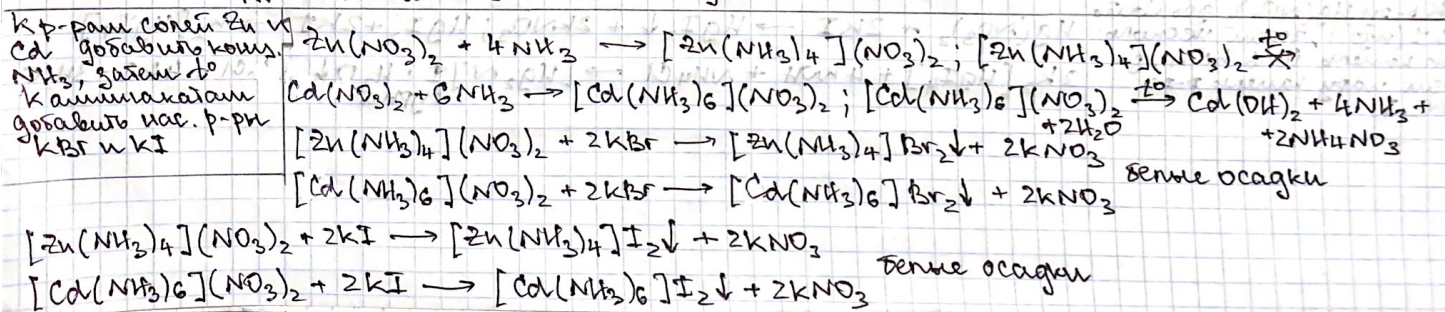 К р-рам солей Zn и
Cd добавить конц.
NH₃, затем t°
К аммиакатам
добавить нас. р-ры
KBr и KI
Zn(NO₃)₂ + 4NH₃ → [Zn(NH₃)₄](NO₃)₂; [Zn(NH₃)₄](NO₃)₂ t° ↛
Cd(NO₃)₂ + 6NH₃ → [Cd(NH₃)₆](NO₃)₂; [Cd(NH₃)₆](NO₃)₂ t° → Cd(OH)₂ + 4NH₃ +
+2H₂O +2NH4NO₃
[Zn(NH₃)₄](NO₃)₂ + 2KBr → [Zn(NH₃)₄]Br₂↓ + 2KNO₃
белые осадки
[Cd(NH₃)₆](NO₃)₂ + 2KBr → [Cd(NH₃)₆]Br₂↓ + 2KNO₃
[Zn(NH₃)₄](NO₃)₂ + 2KI → [Zn(NH₃)₄]I₂↓ + 2KNO₃
белые осадки
[Cd(NH₃)₆](NO₃)₂ + 2KI → [Cd(NH₃)₆]I₂↓ + 2KNO₃